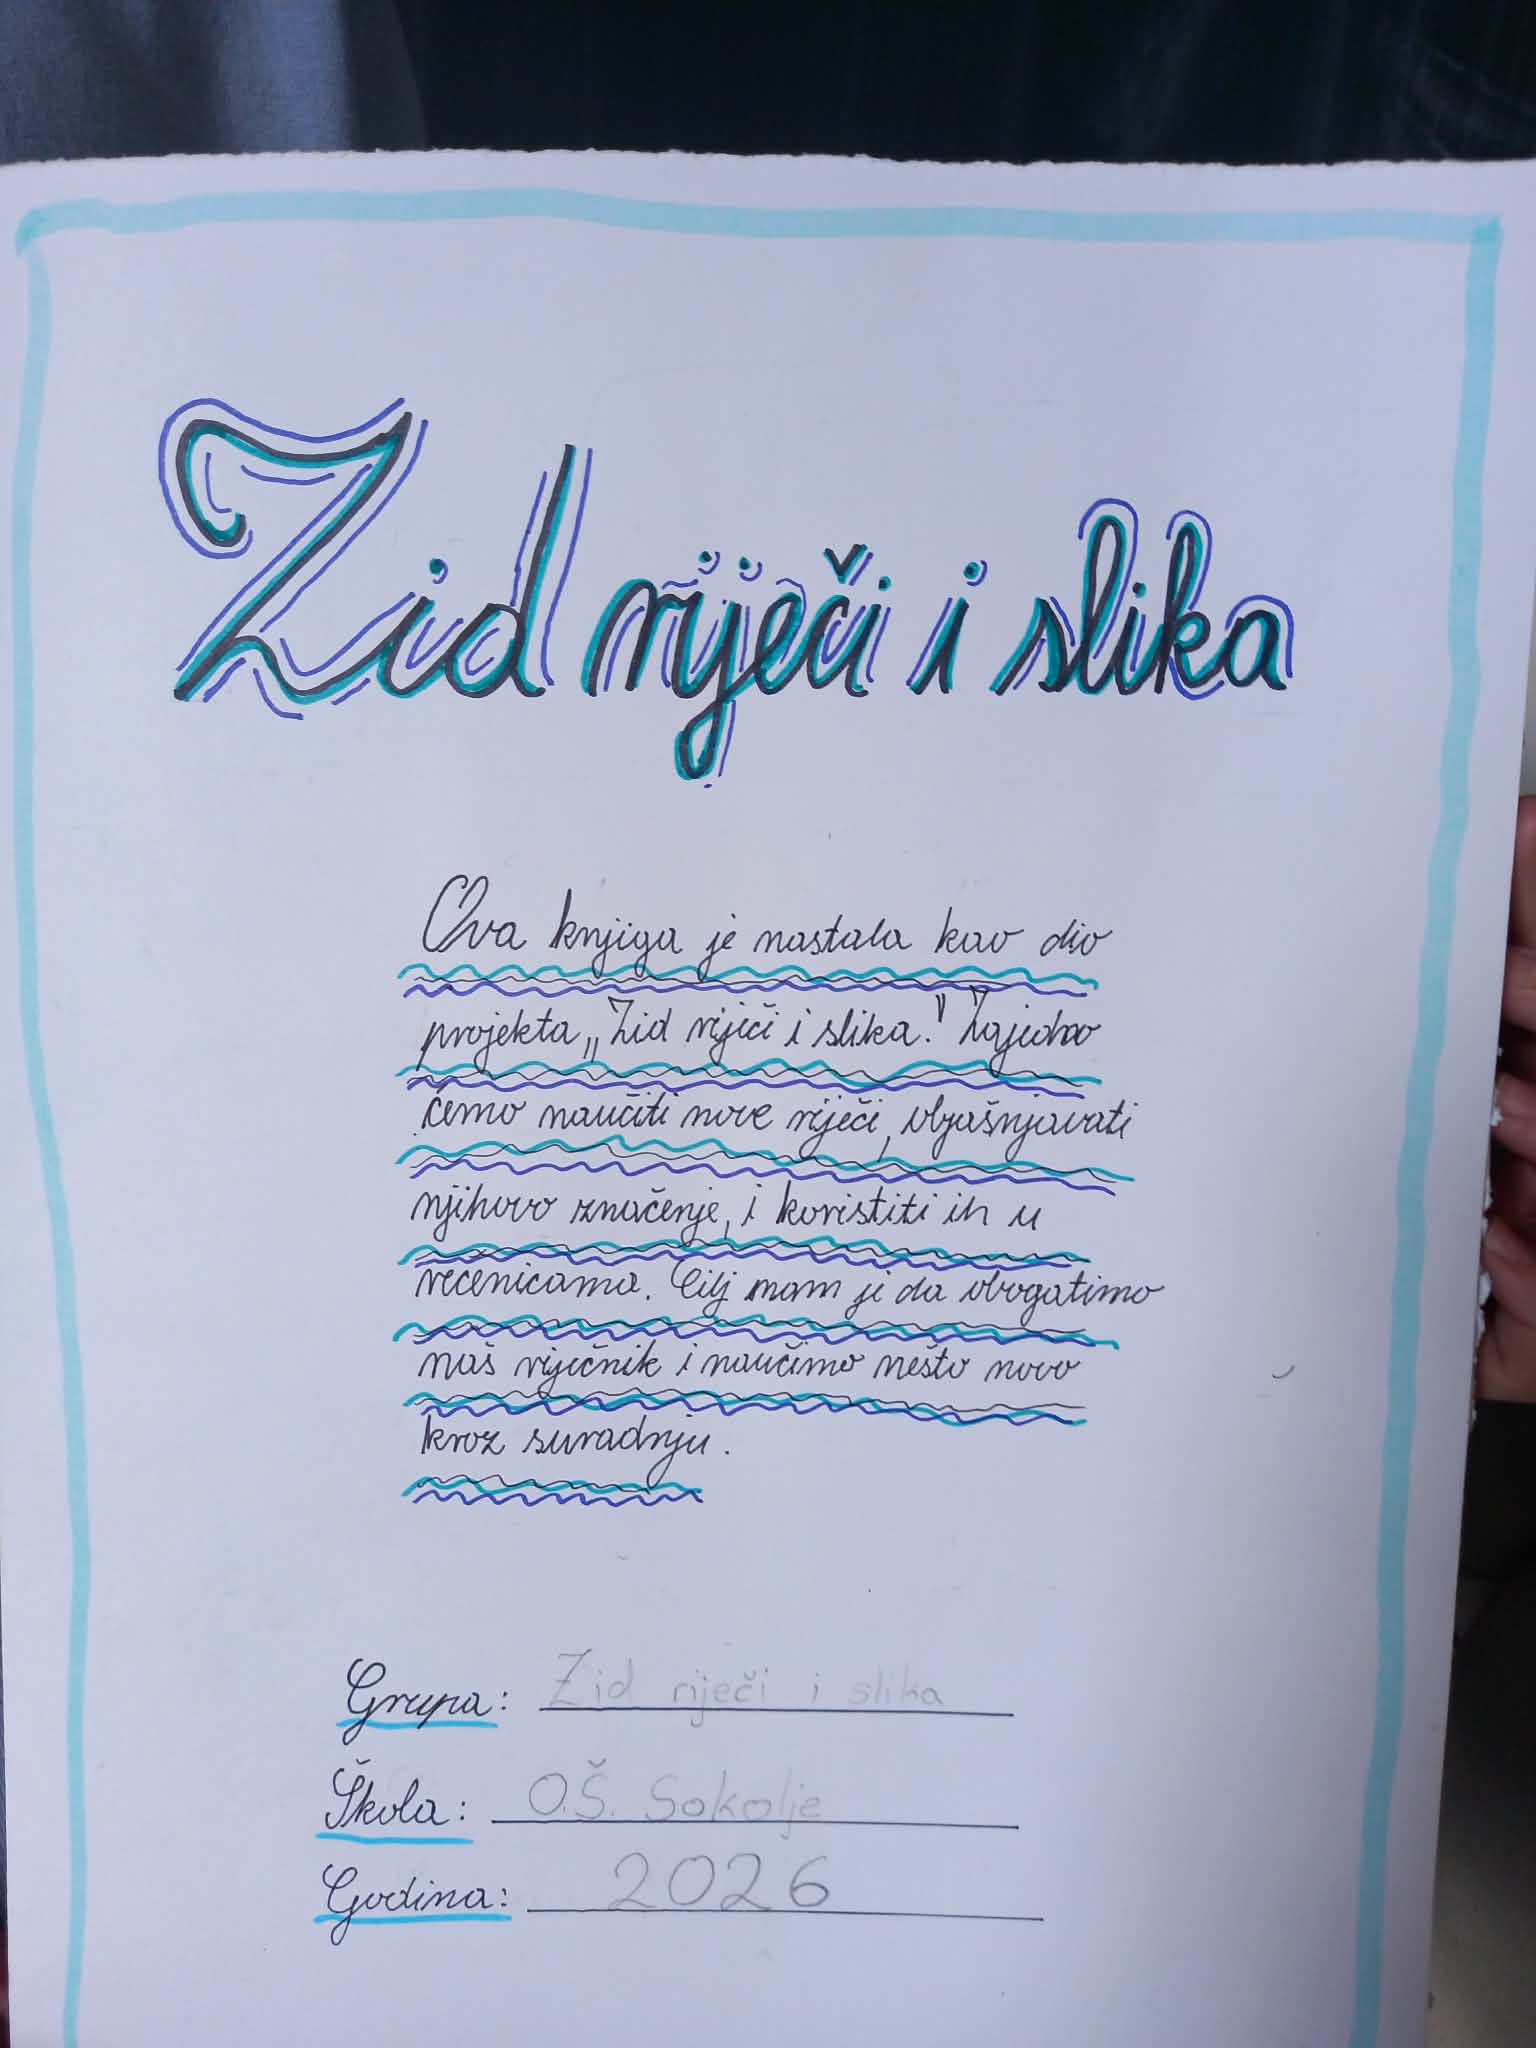 Zid riječi i slika
Ova knjiga je nastala kao dio
projekta „Zid riječi i slika." Zajedno
ćemo naučiti nove riječi, objašnjavati
njihovo značenje, i koristiti ih u
rečenicama. Cilj nam je da obogatimo
naš riječnik i naučimo nešto novo
kroz suradnju.
Grupa: Zid riječi i slika
Škola: O.Š. Sokolje
Godina: 2026